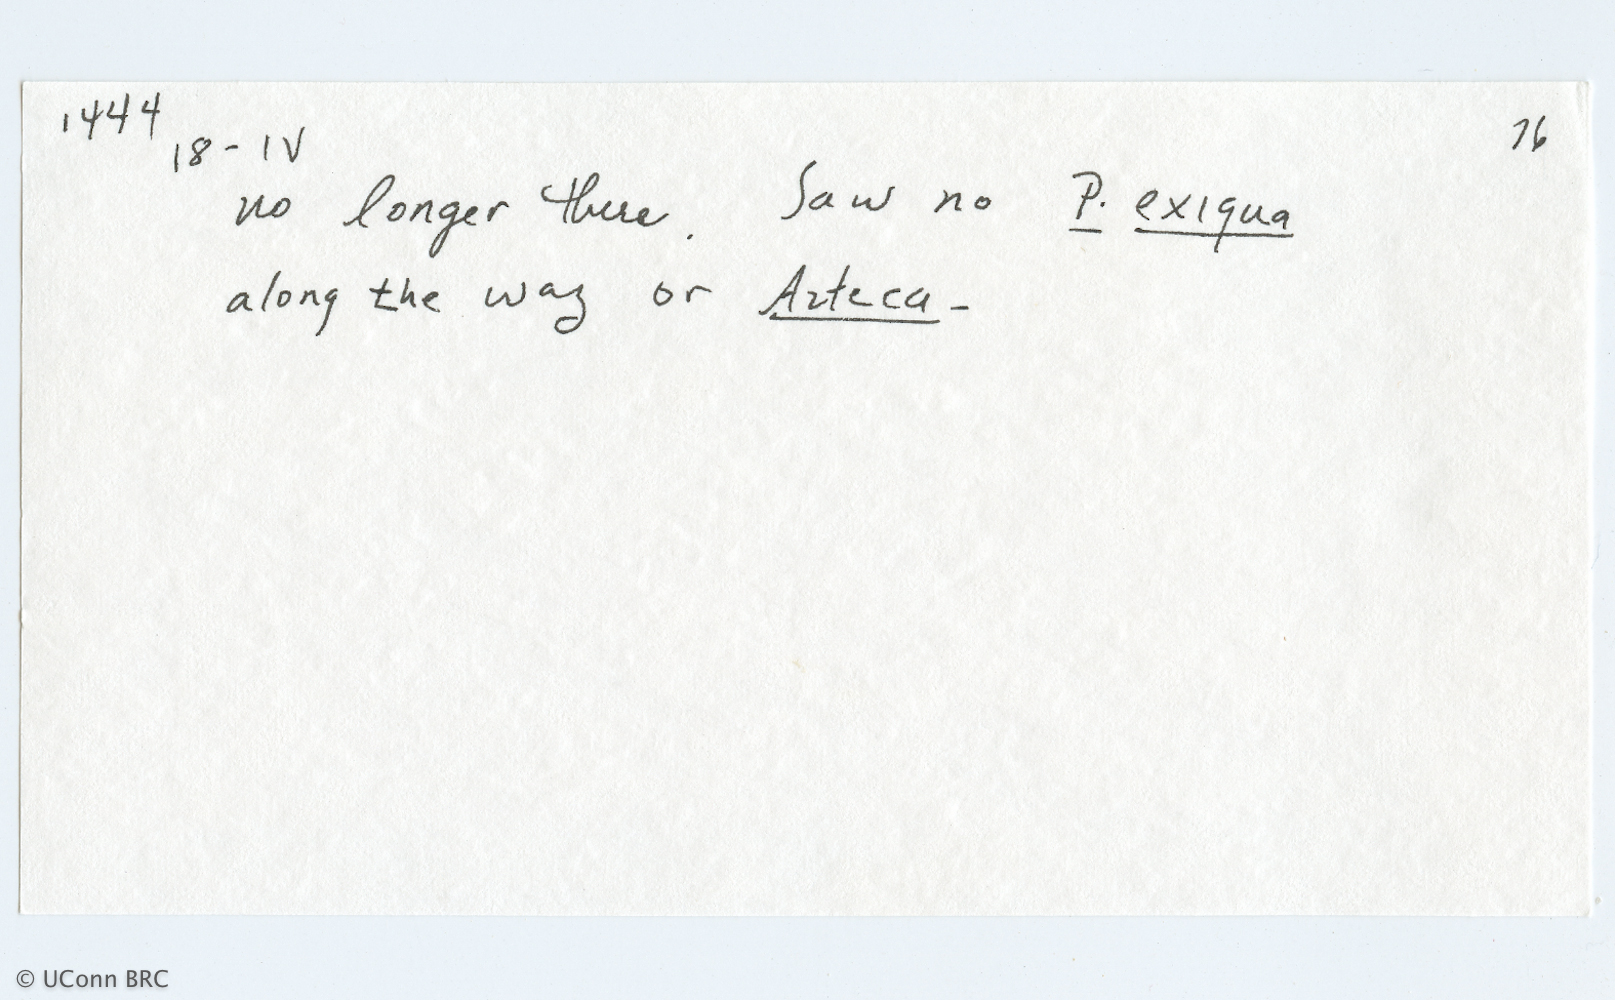 1444
76
18-IV
no longer there. Saw no P. exiqua
along the way or Azteca-
© UConn BRC